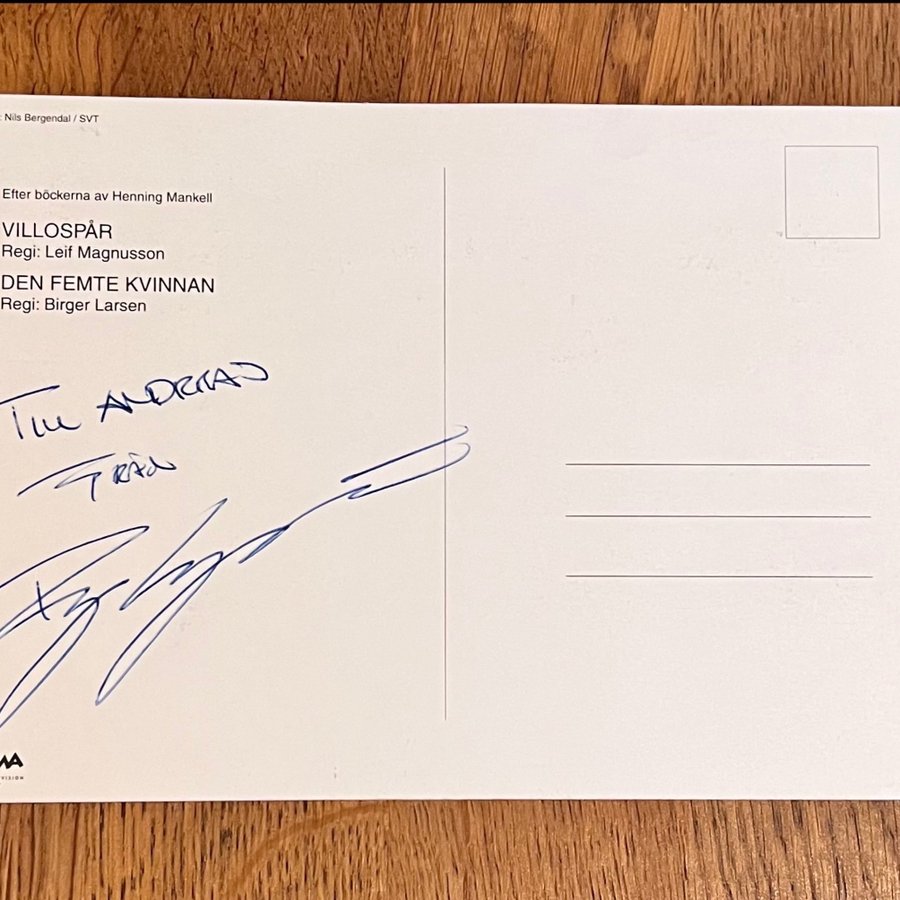 : Nils Bergendal / SVT
Efter böckerna av Henning Mankell
VILLOSPÅR
Regi: Leif Magnusson
DEN FEMTE KVINNAN
Regi: Birger Larsen
TILL ANDREAS
FRÅN